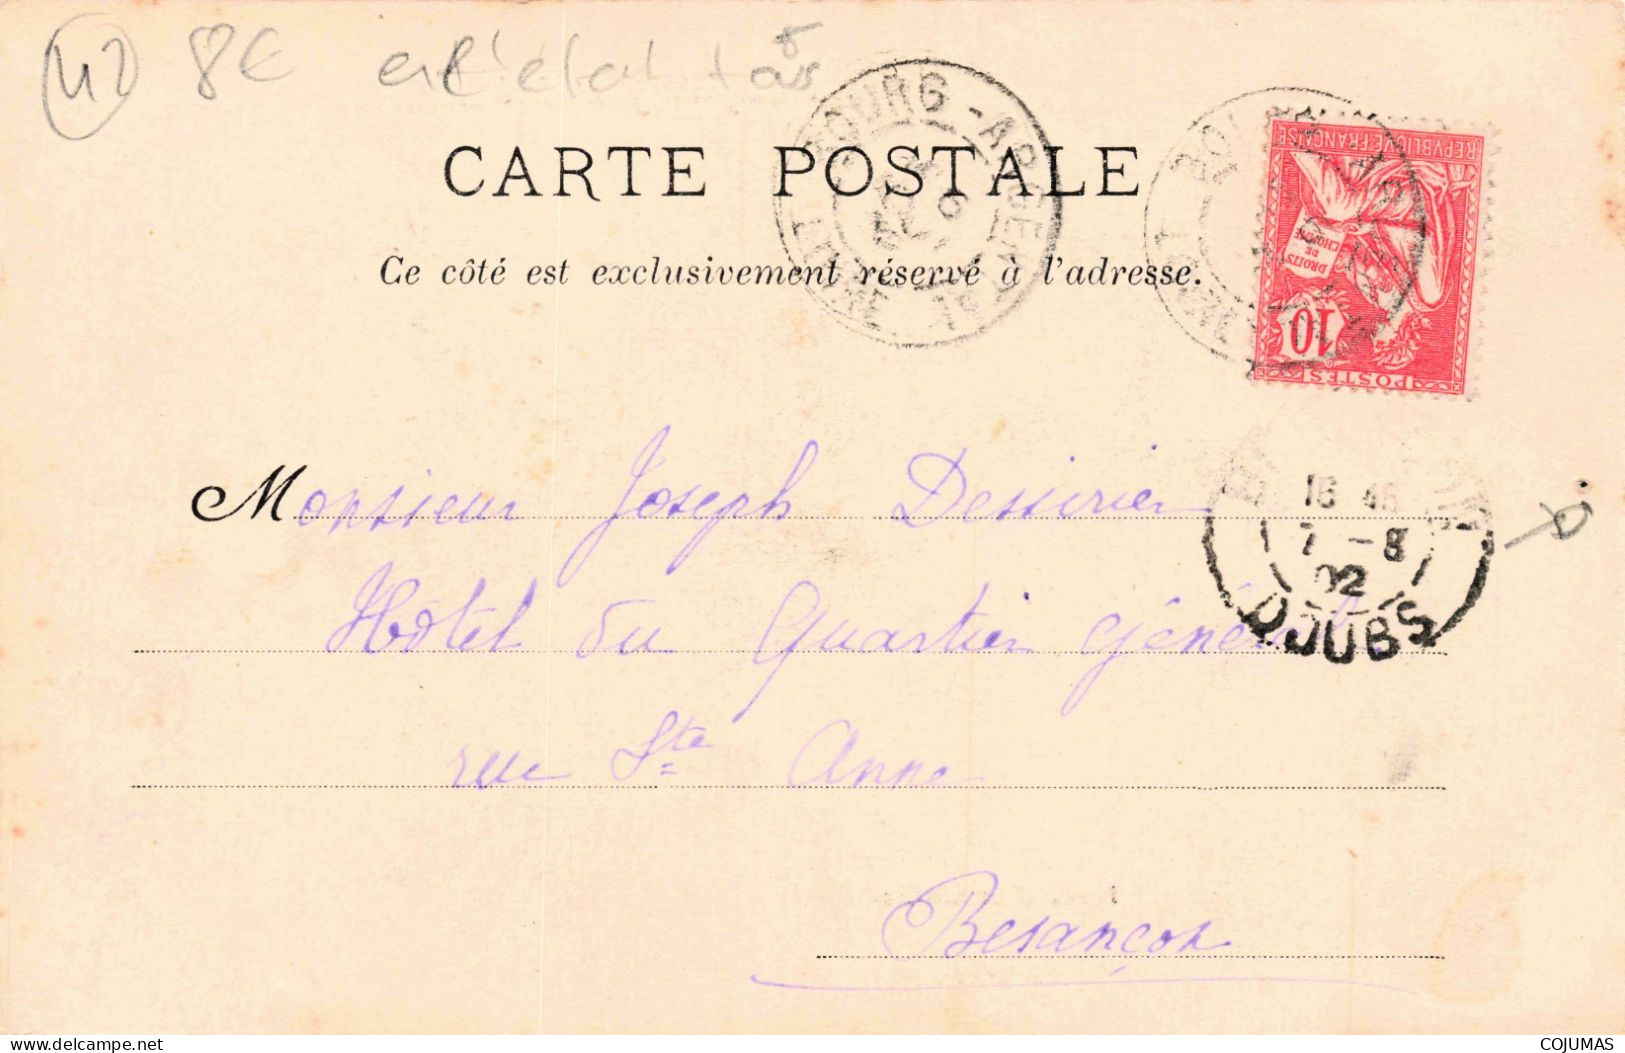 42 8€
BOURG-ARGENTAL
LOIRE
CARTE POSTALE
Ce côté est exclusivement réservé à l'adresse.
REPVBLIQVE FRANÇAISE
DROITS
DE
L'HOMME
10
POSTES
Monsieur Joseph Dessirier
16 45
7 -8
02
DOUBS
Hôtel du Quartier Général
rue Ste Anne
Besançon
delcampe.net
COJUMAS